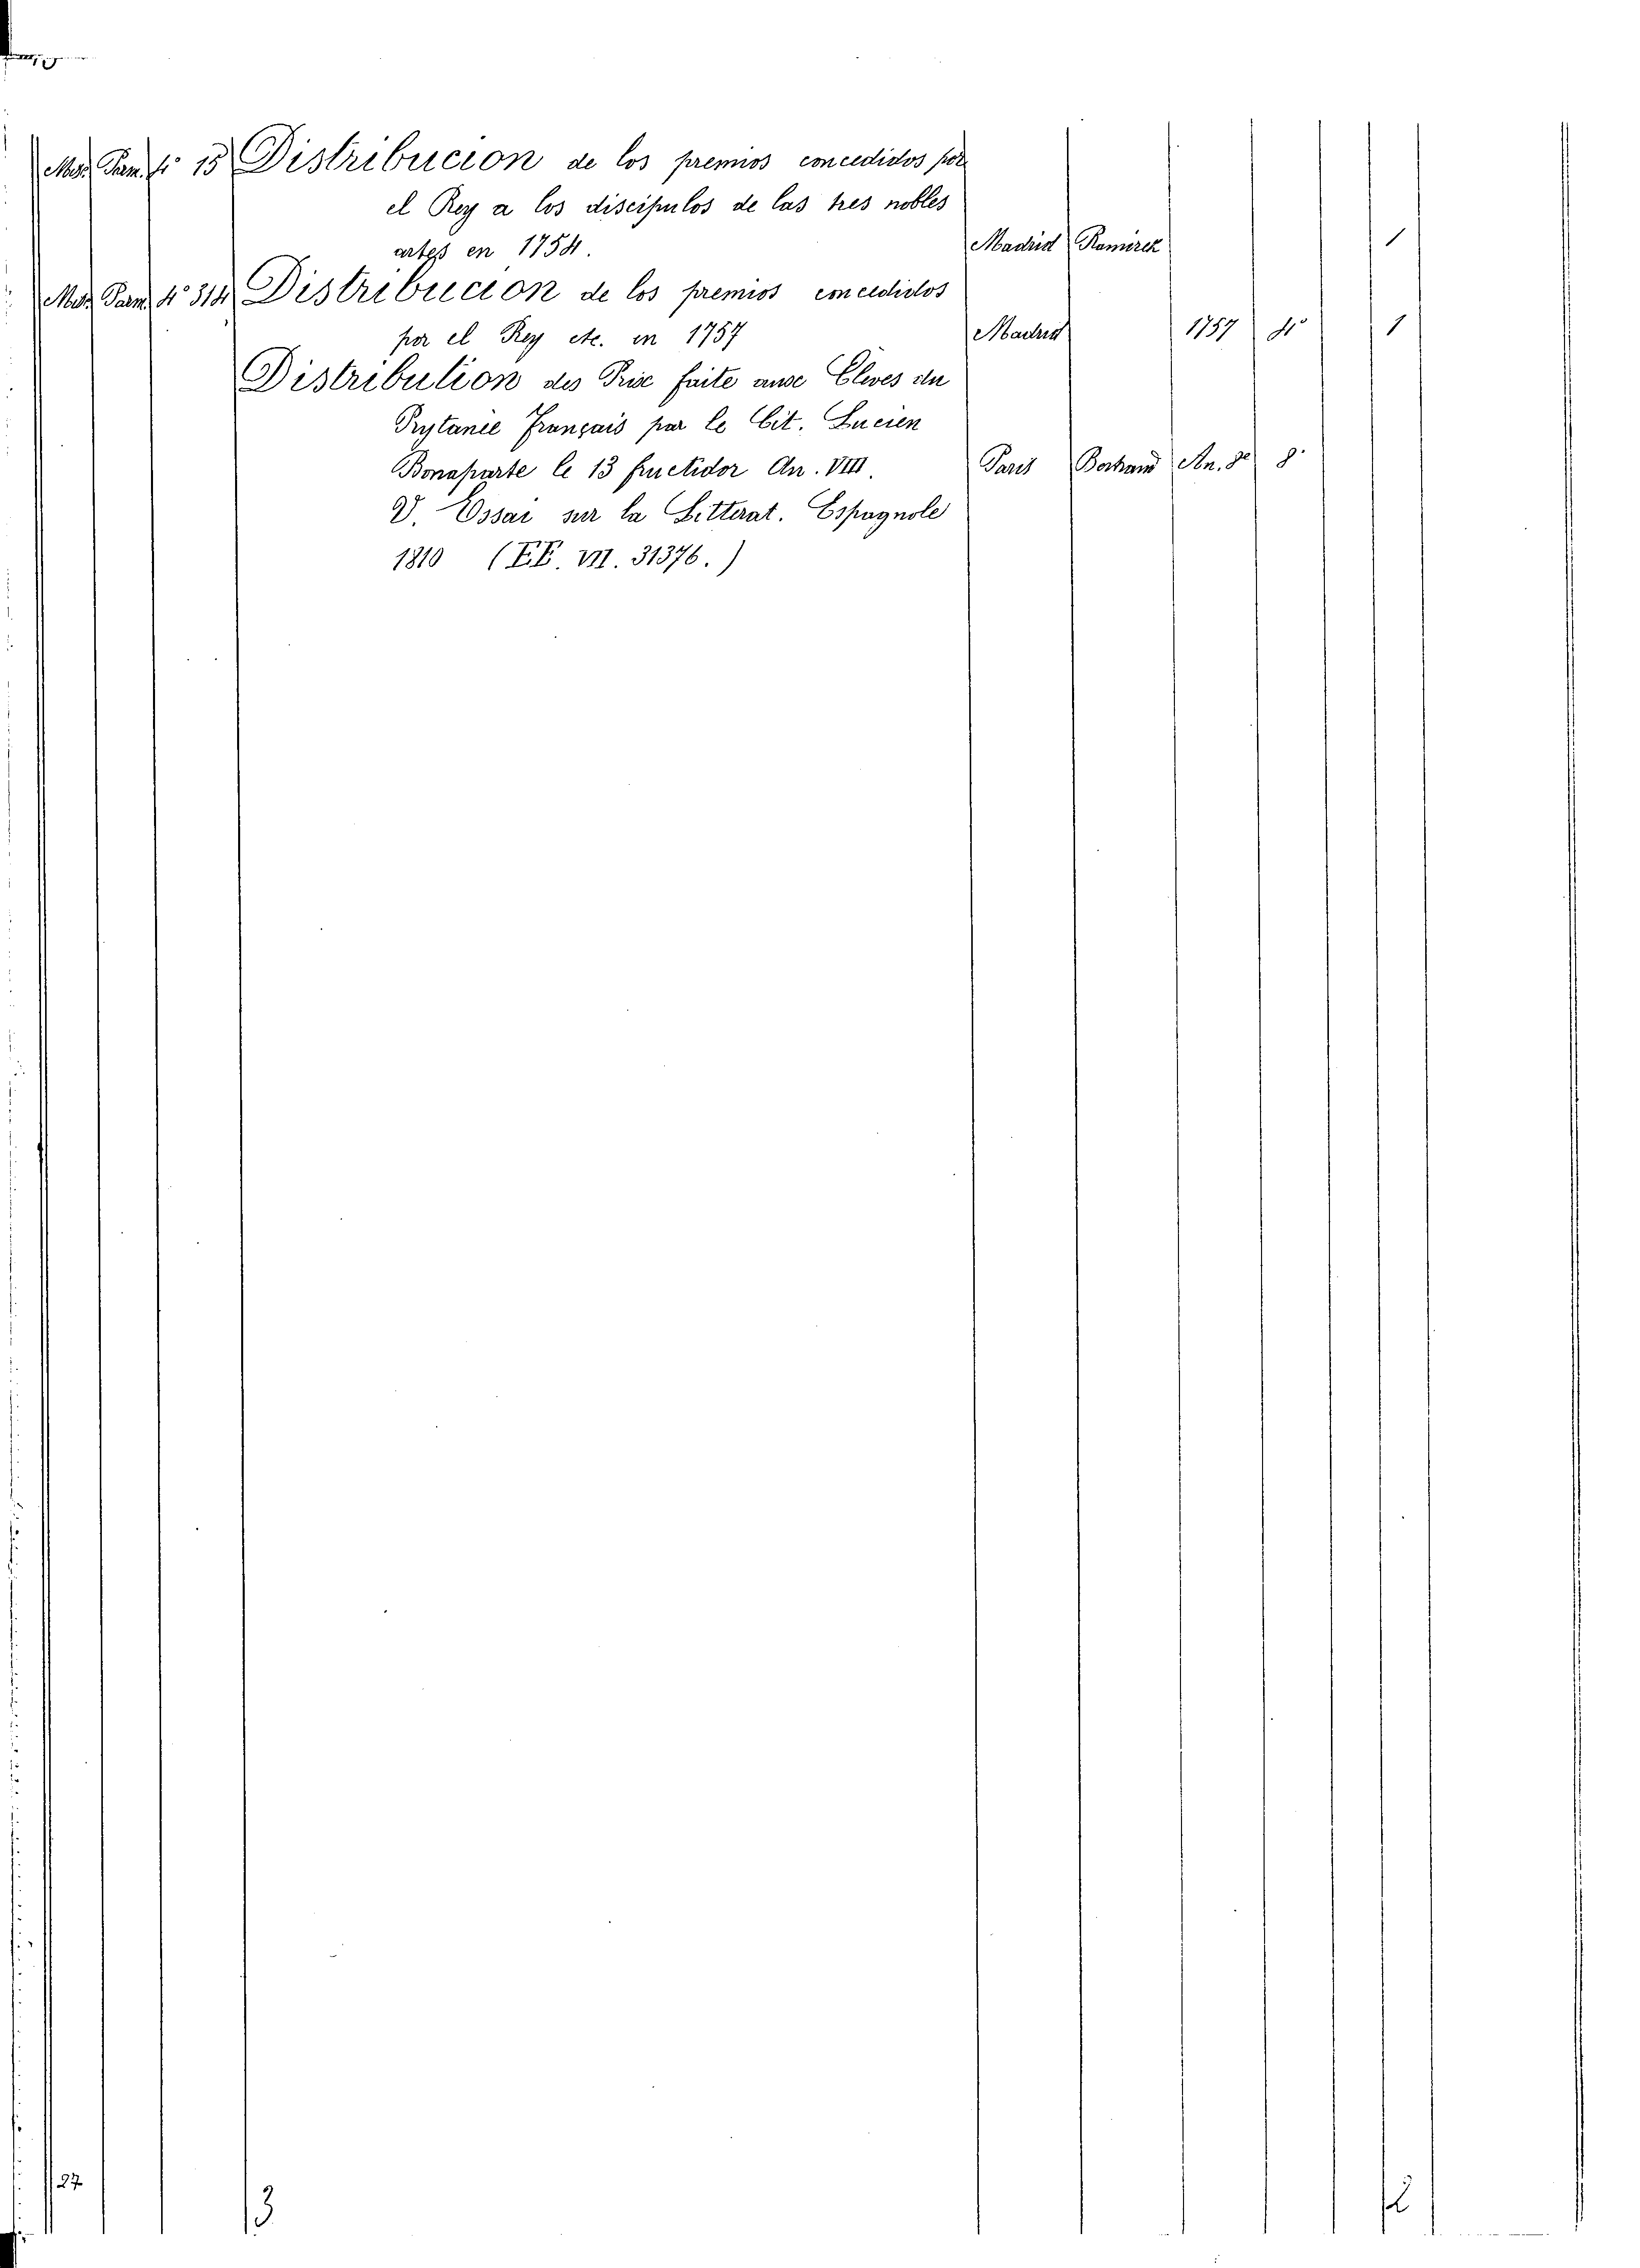 Mus. Pam. 4º 15 Distribucion de los premios concedidos por
el Rey a los discipulos de las tres nobles
artes en 1754. Madrid Ramirez 1
Mus. Pam. 4º 314 Distribucion de los premios concedidos
por el Rey etc. en 1757 Madrid 1757 4º 1
Distribution des Prix faite aux Eleves du
Prytanée Français par le Cit. Lucien
Bonaparte le 13 fructidor An. VIII. Paris An. 8e 8º
V. Essai sur la Litterat. Espagnole
1810 (EE. VII. 31376.)
27
3
2